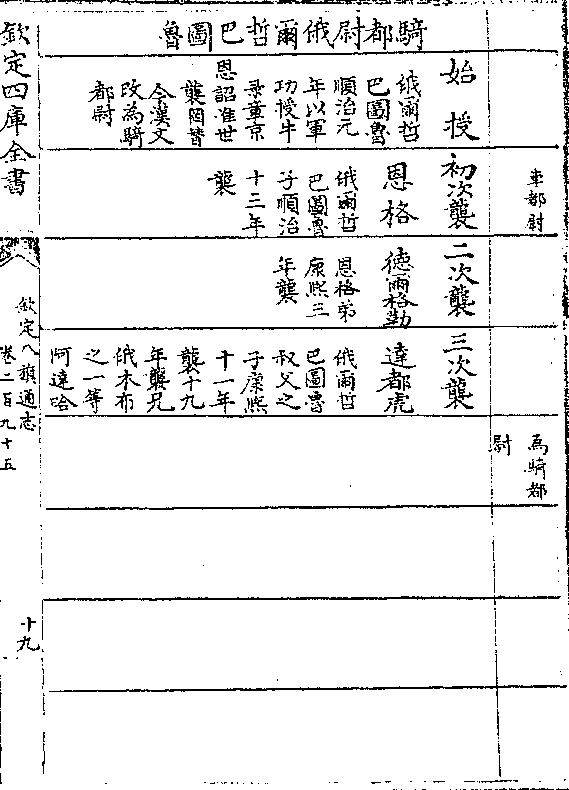 車都尉
為騎都
尉
騎都尉俄爾哲巴圖魯
始授
俄爾哲
巴圖魯
順治元
年以軍
功授牛
录章京
恩詔准世
襲罔替
今漢文
改為騎
都尉
初次襲
恩格
俄爾哲
巴圖魯
子順治
十三年
襲
二次襲
德爾格勒
恩格弟
康熙三
年襲
三次襲
達都虎
俄爾哲
巴圖魯
叔父之
子康熙
十一年
襲十九
年襲兄
俄木布
之一等
阿達哈
欽定四庫全書
欽定八旗通志
卷二百九十五
十九